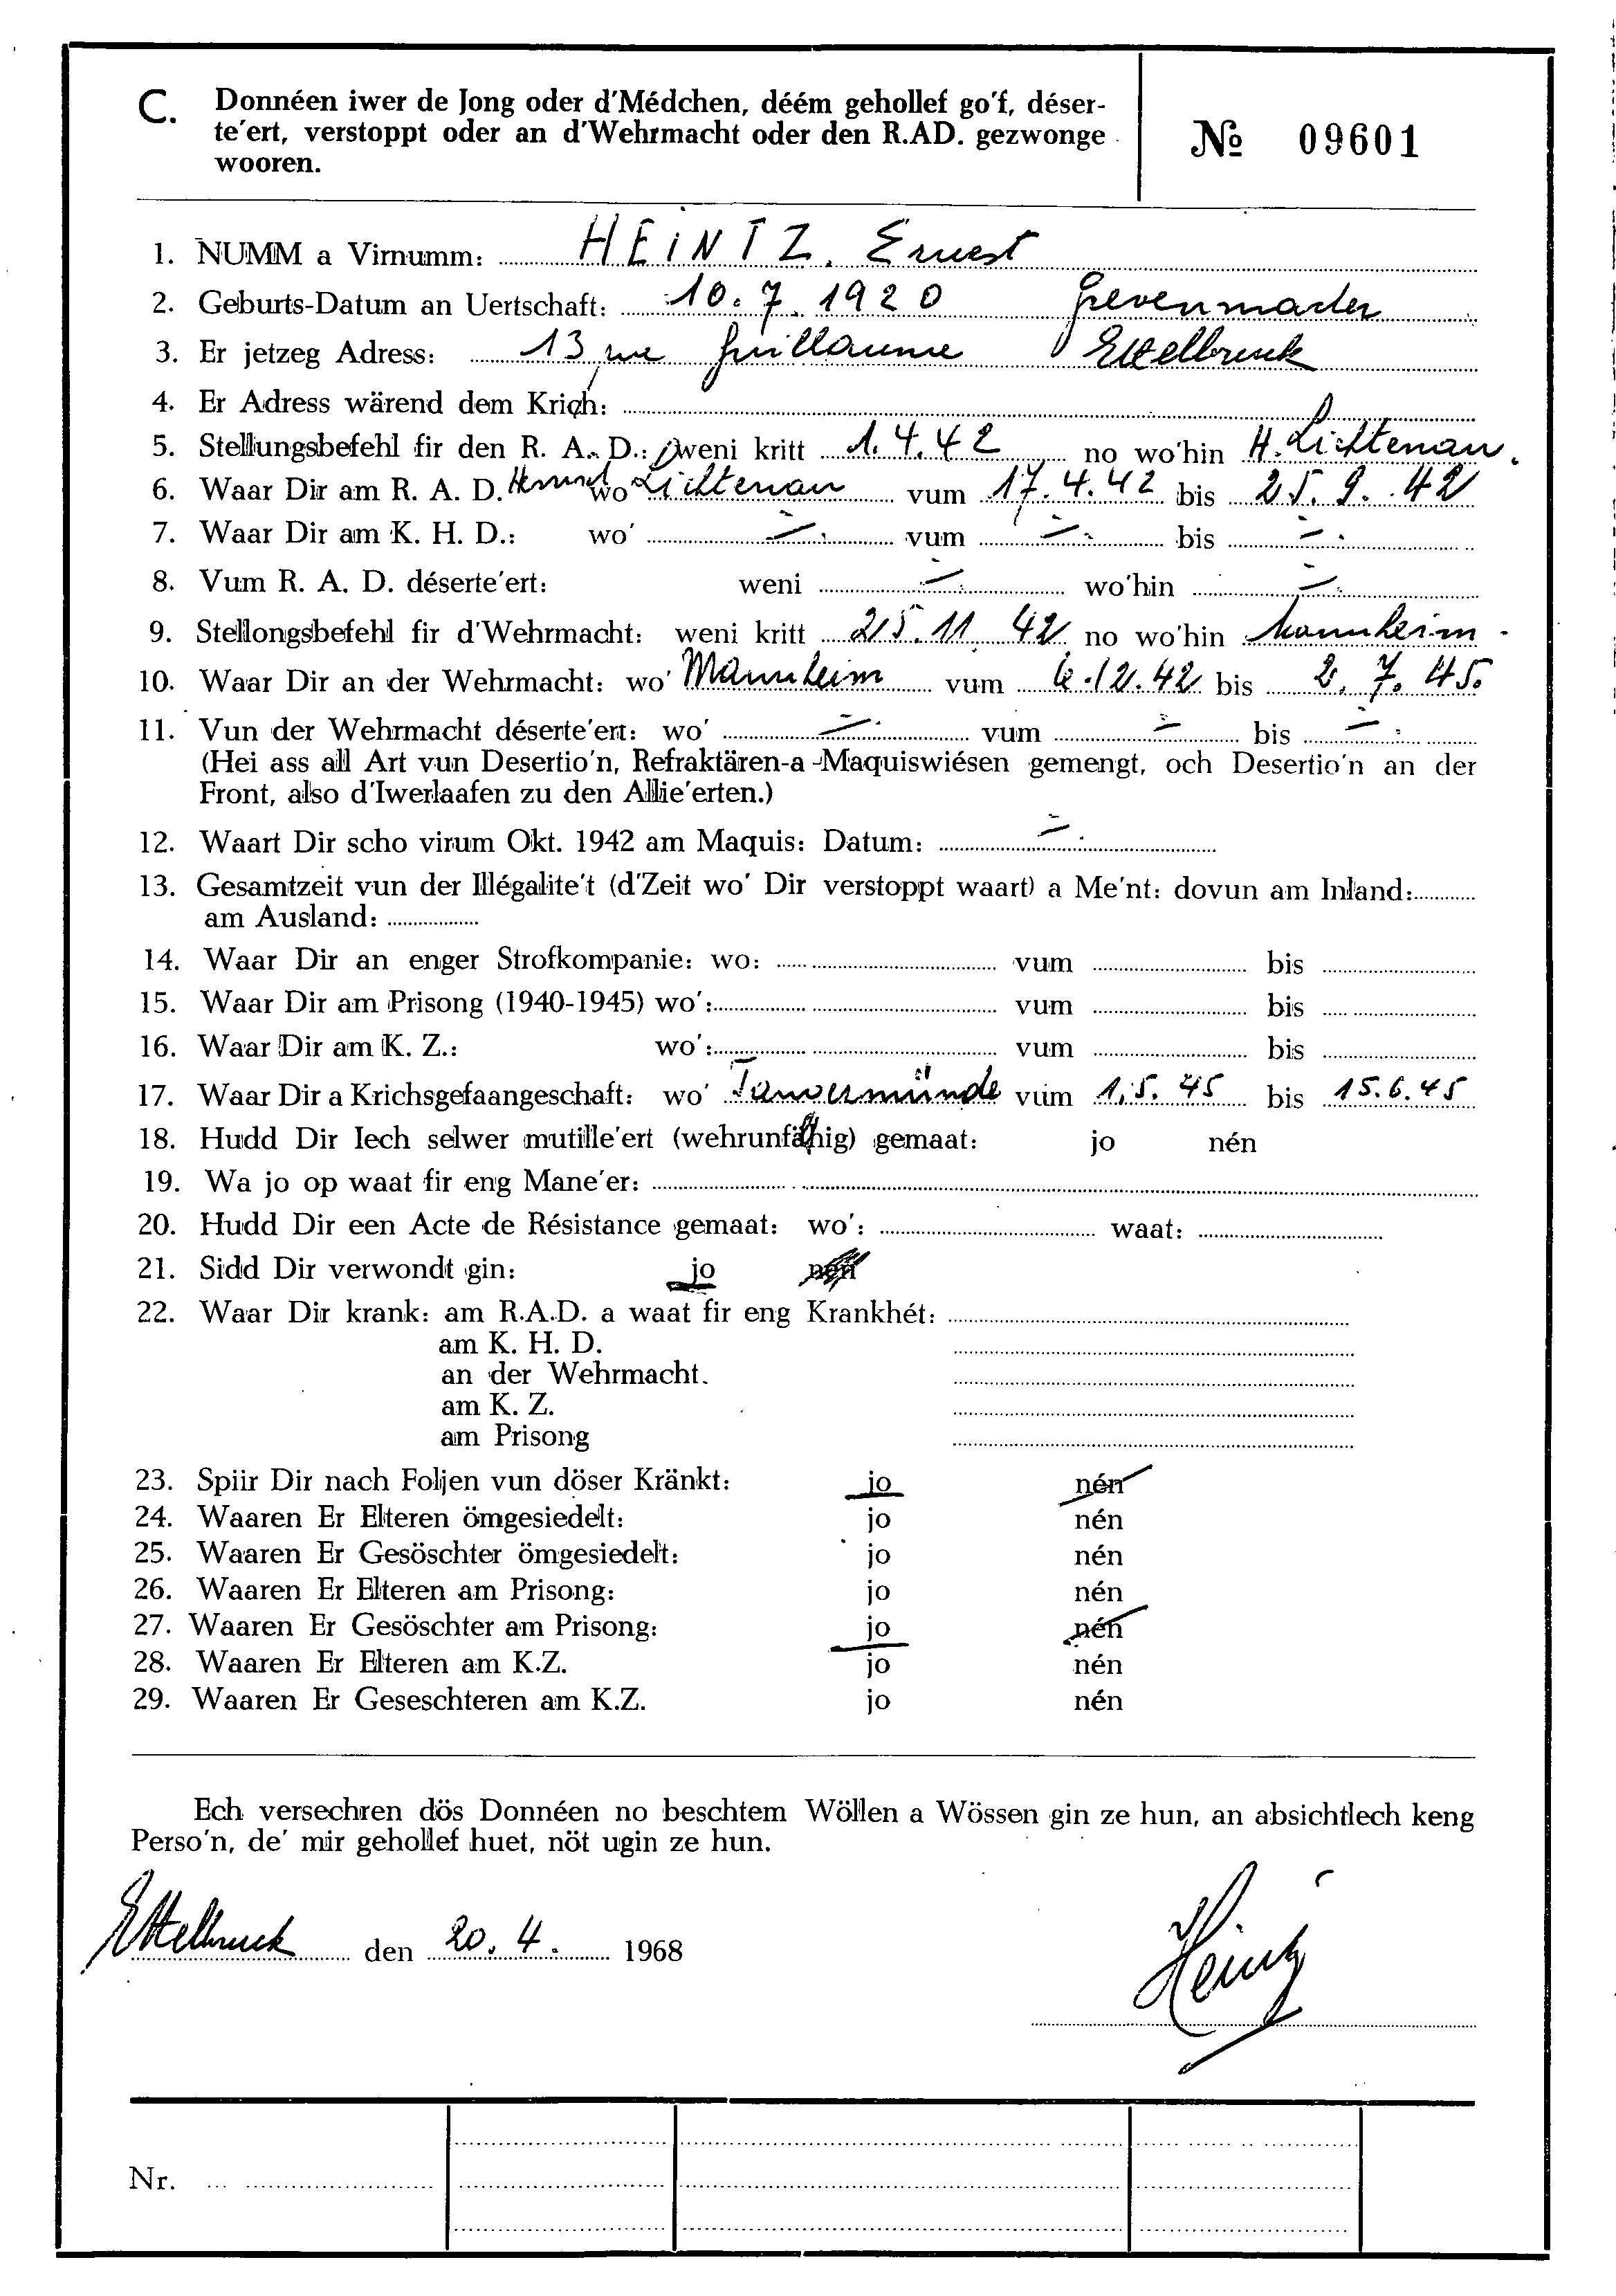 C. Donnéen iwer de Jong oder d'Médchen, déém gehollef go'f, déser-
te'ert, verstoppt oder an d'Wehrmacht oder den R.AD. gezwonge
wooren.
№ 09601
1. NUMM a Virnumm: HEINTZ. Ernest
2. Geburts-Datum an Uertschaft: 10.7.1920 Grevenmacher
3. Er jetzeg Adress: 13, rue Guillaume Ettelbruck
4. Er Adress wärend dem Krich:
5. Stellungsbefehl fir den R. A. D.: weni kritt 1.4.42 no wo'hin H. Lichtenau.
6. Waar Dir am R. A. D. wo Lichtenau vum 17.4.42 bis 25.9.42
7. Waar Dir am K. H. D.: wo' —. vum —. bis —.
8. Vum R. A. D. déserte'ert: weni —. wo'hin —.
9. Stellongsbefehl fir d'Wehrmacht: weni kritt 25.11.42 no wo'hin Mannheim.
10. Waar Dir an der Wehrmacht: wo' Mannheim vum .12.42 bis 2.7.45.
11. Vun der Wehrmacht déserte'ert: wo' —. vum — bis —.
(Hei ass all Art vun Desertio'n, Refraktären-a-Maquiswiésen gemengt, och Desertio'n an der
Front, also d'Iwerlaafen zu den Allie'erten.)
12. Waart Dir scho virum Okt. 1942 am Maquis: Datum: —.
13. Gesamtzeit vun der Illégalite't (d'Zeit wo' Dir verstoppt waart) a Me'nt: dovun am Inland:
am Ausland:
14. Waar Dir an enger Strofkompanie: wo: vum bis
15. Waar Dir am Prisong (1940-1945) wo': vum bis
16. Waar Dir am K. Z.: wo': vum bis
17. Waar Dir a Krichsgefaangeschaft: wo' vum 1.5.45 bis 15.6.45
18. Hudd Dir Iech selwer mutille'ert (wehrunfähig) gemaat: jo nén
19. Wa jo op waat fir eng Mane'er:
20. Hudd Dir een Acte de Résistance gemaat: wo': waat:
21. Sidd Dir verwondt gin: jo nén
22. Waar Dir krank: am R.A.D. a waat fir eng Krankhét:
am K. H. D.
an der Wehrmacht.
am K. Z.
am Prisong
23. Spiir Dir nach Foljen vun döser Kränkt: jo nén
24. Waaren Er Elteren ömgesiedelt: jo nén
25. Waaren Er Gesöschter ömgesiedelt: jo nén
26. Waaren Er Elteren am Prisong: jo nén
27. Waaren Er Gesöschter am Prisong: jo nén
28. Waaren Er Elteren am K.Z. jo nén
29. Waaren Er Geseschteren am K.Z. jo nén
Ech versechren dös Donnéen no beschtem Wöllen a Wössen gin ze hun, an absichtlech keng
Perso'n, de' mir gehollef huet, nöt ugin ze hun.
Ettelbruck den 20.4. 1968
Heintz
Nr.